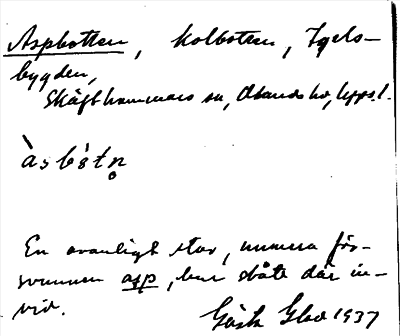 Aspbotten, Kolbotten, Igels-
bygden,
Skäfthammars sn, Olands hd, Upps. l.
àsbòtn̥
En ovanligt stor, numera för-
svunnen asp, har stått där in-
vid.
Gösta Glad 1937